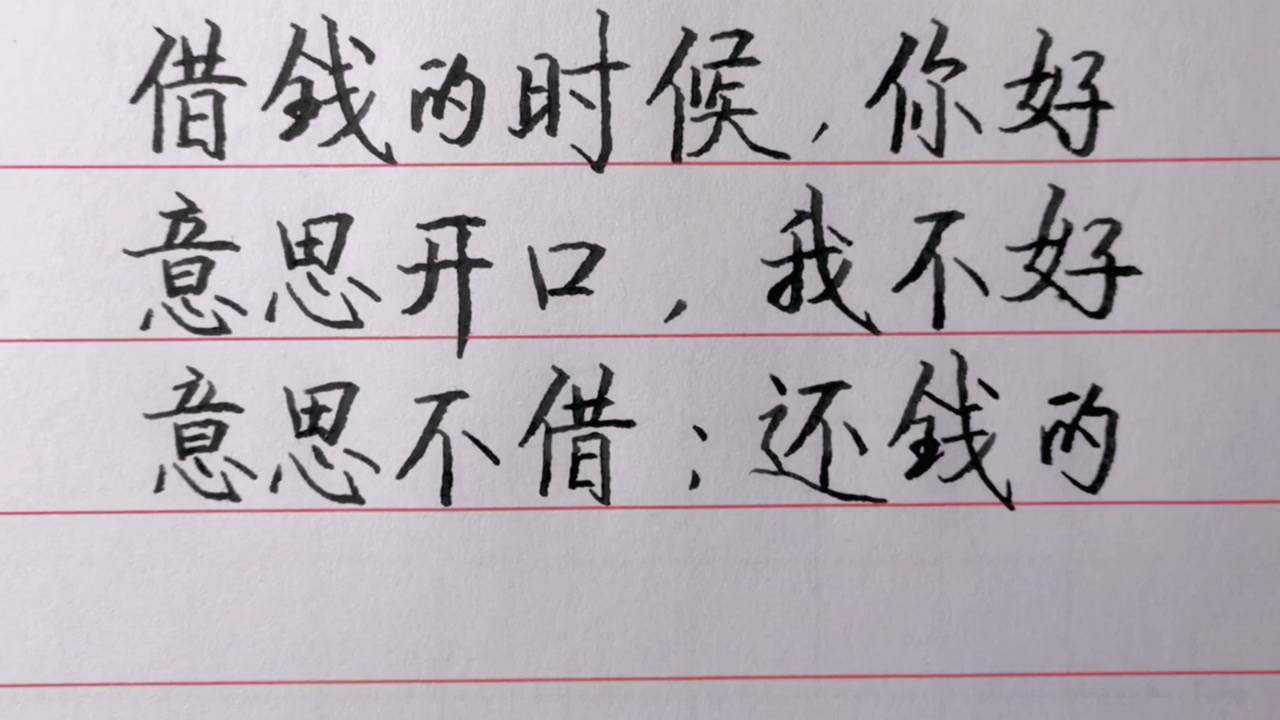 借钱的时候,你好
意思开口,我不好
意思不借;还钱的